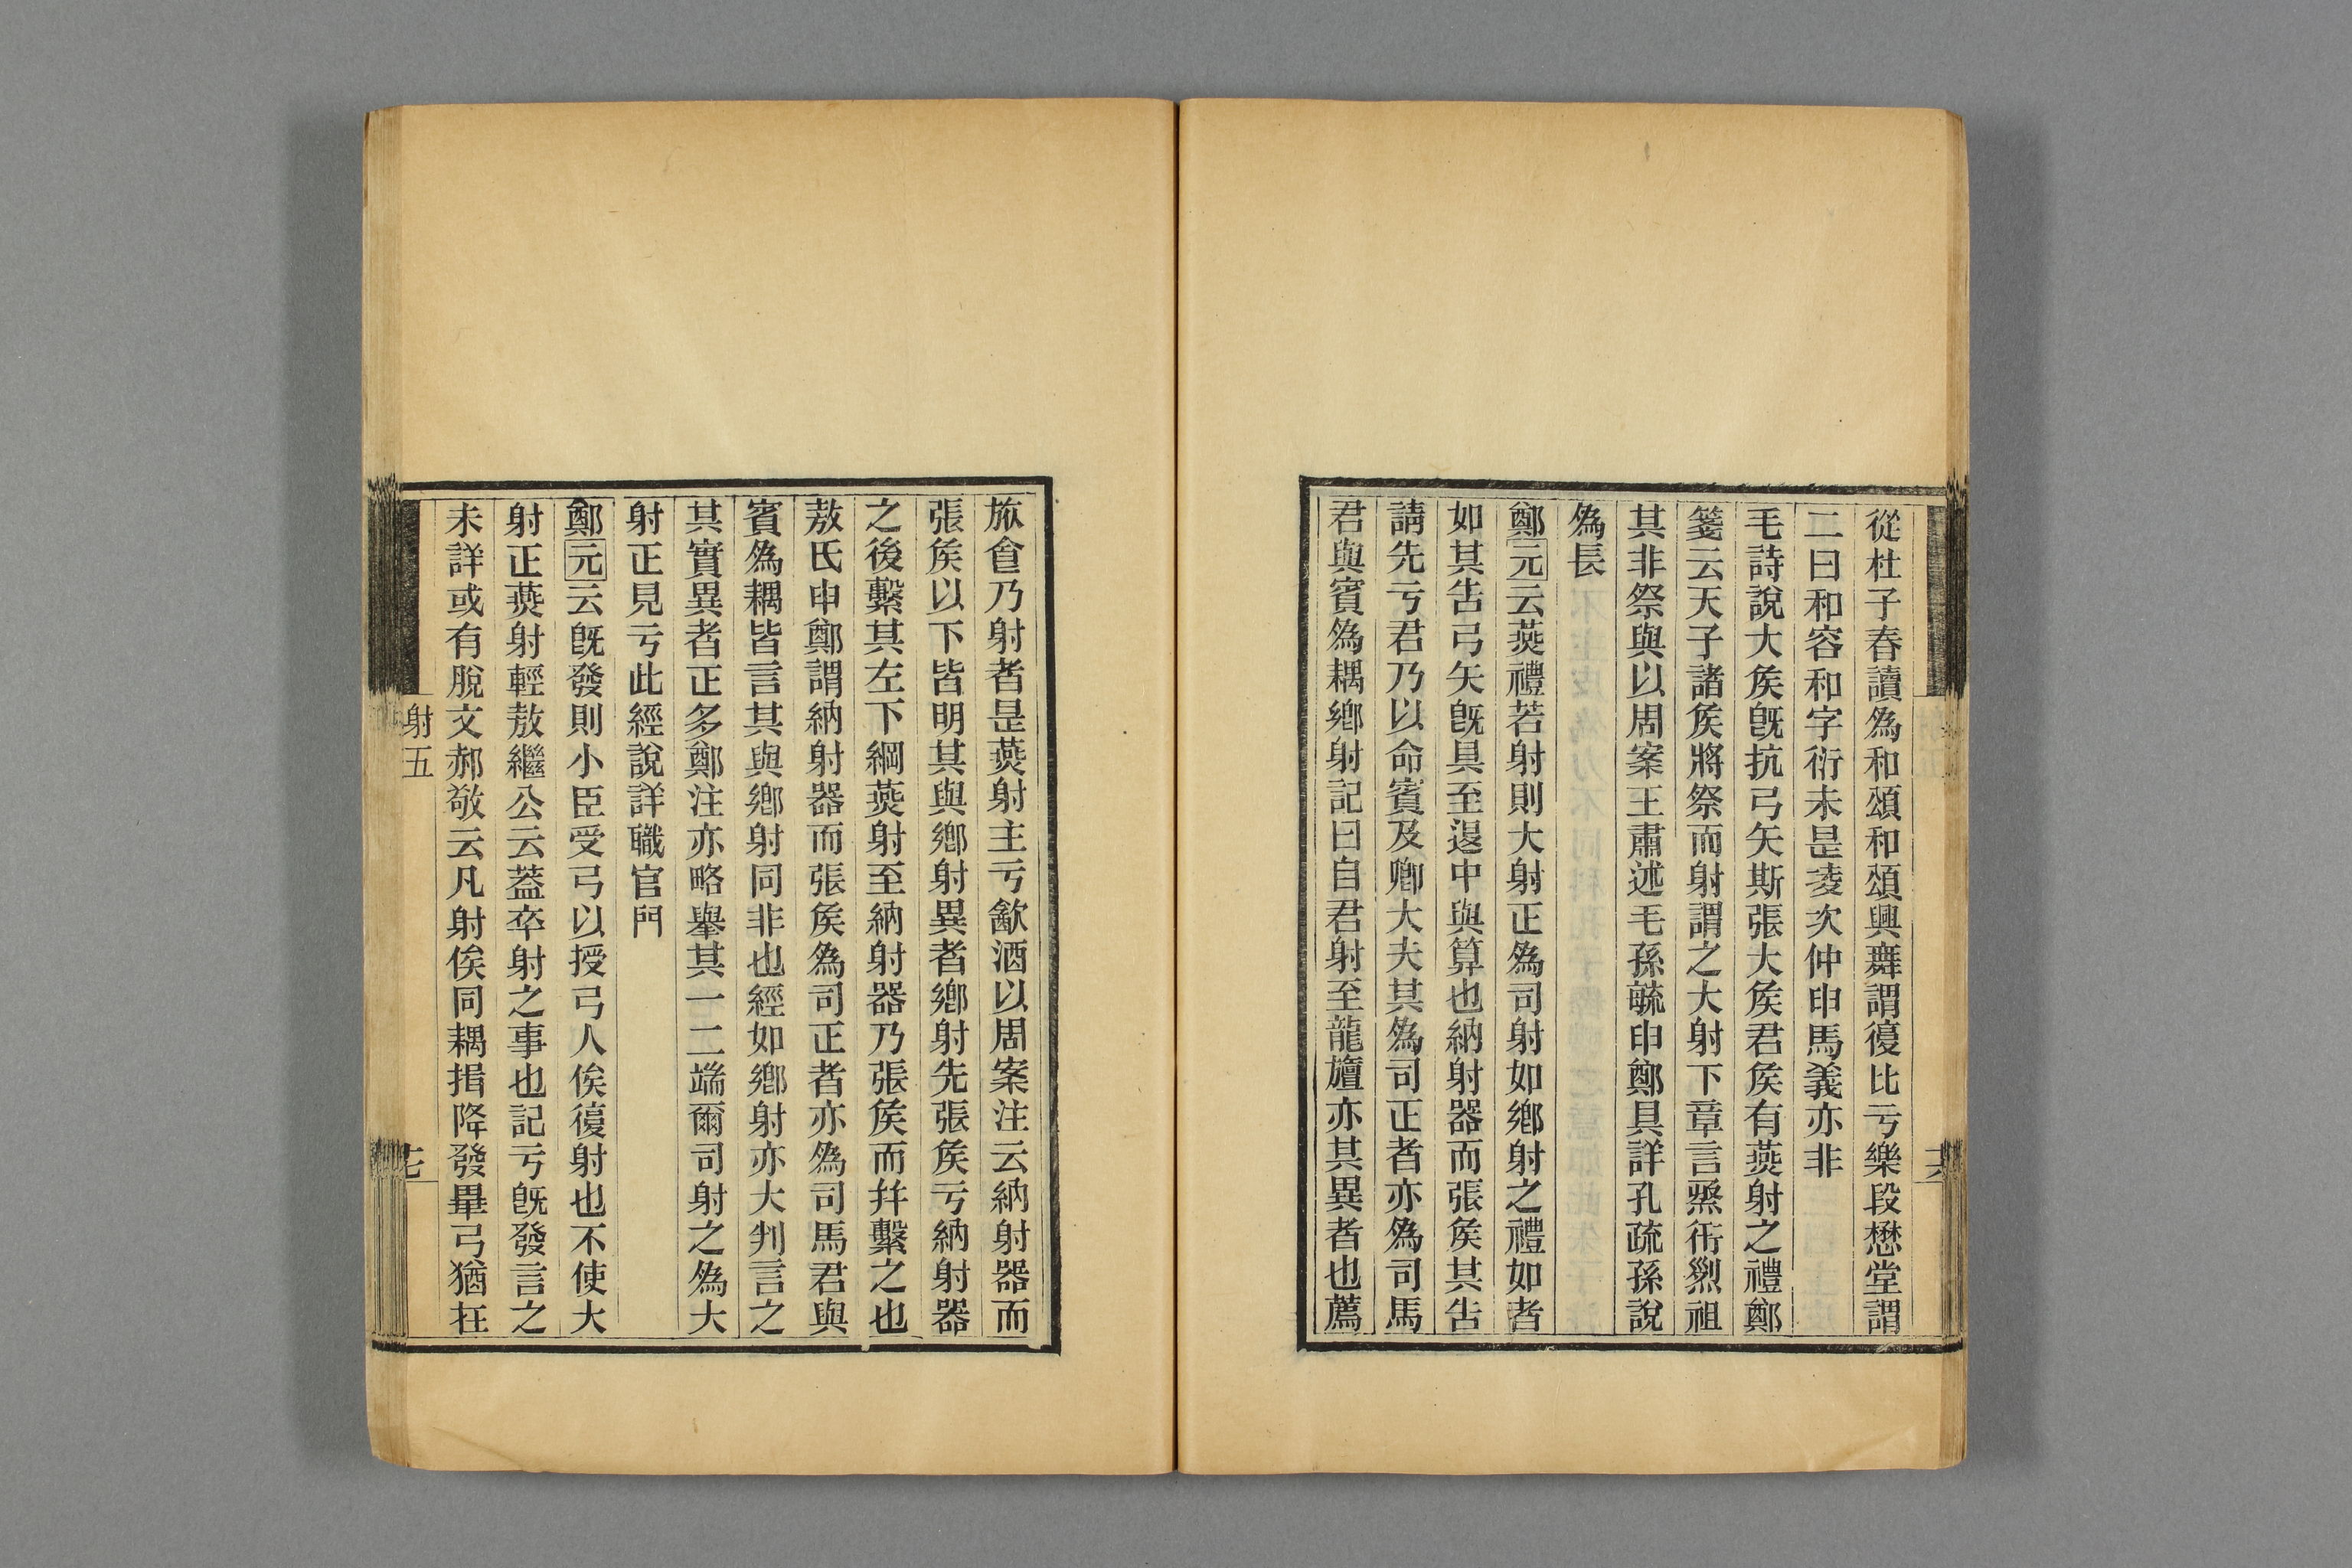 從杜子春讀爲和頌和頌興舞謂復比亏樂段懋堂謂
二曰和容和字衍未是淩次仲申馬義亦非
毛詩說大矦旣抗弓矢斯張大矦君矦有燕射之禮鄭
箋云天子諸矦將祭而射謂之大射下章言烝衎烈祖
其非祭與以周案王肅述毛孫毓申鄭具詳孔疏孫說
爲長
鄭元云燕禮若射則大射正爲司射如鄉射之禮如者
如其告弓矢旣具至退中與算也納射器而張矦其告
請先亏君乃以命賓及卿大夫其爲司正者亦爲司馬
君與賓爲耦鄉射記曰自君射至龍旜亦其異者也薦
旅食乃射者是燕射主亏飮酒以周案注云納射器而
張矦以下皆明其與鄉射異者鄉射先張矦亏納射器
之後繫其左下綱燕射至納射器乃張矦而幷繫之也
敖氏申鄭謂納射器而張矦爲司正者亦爲司馬君與
賓爲耦皆言其與鄉射同非也經如鄉射亦大判言之
其實異者正多鄭注亦略擧其一二端爾司射之爲大
射正見亏此經說詳職官門
鄭元云旣發則小臣受弓以授弓人俟復射也不使大
射正燕射輕敖繼公云蓋卒射之事也記亏旣發言之
未詳或有脫文郝敬云凡射俟同耦揖降發畢弓猶在
射五
十七